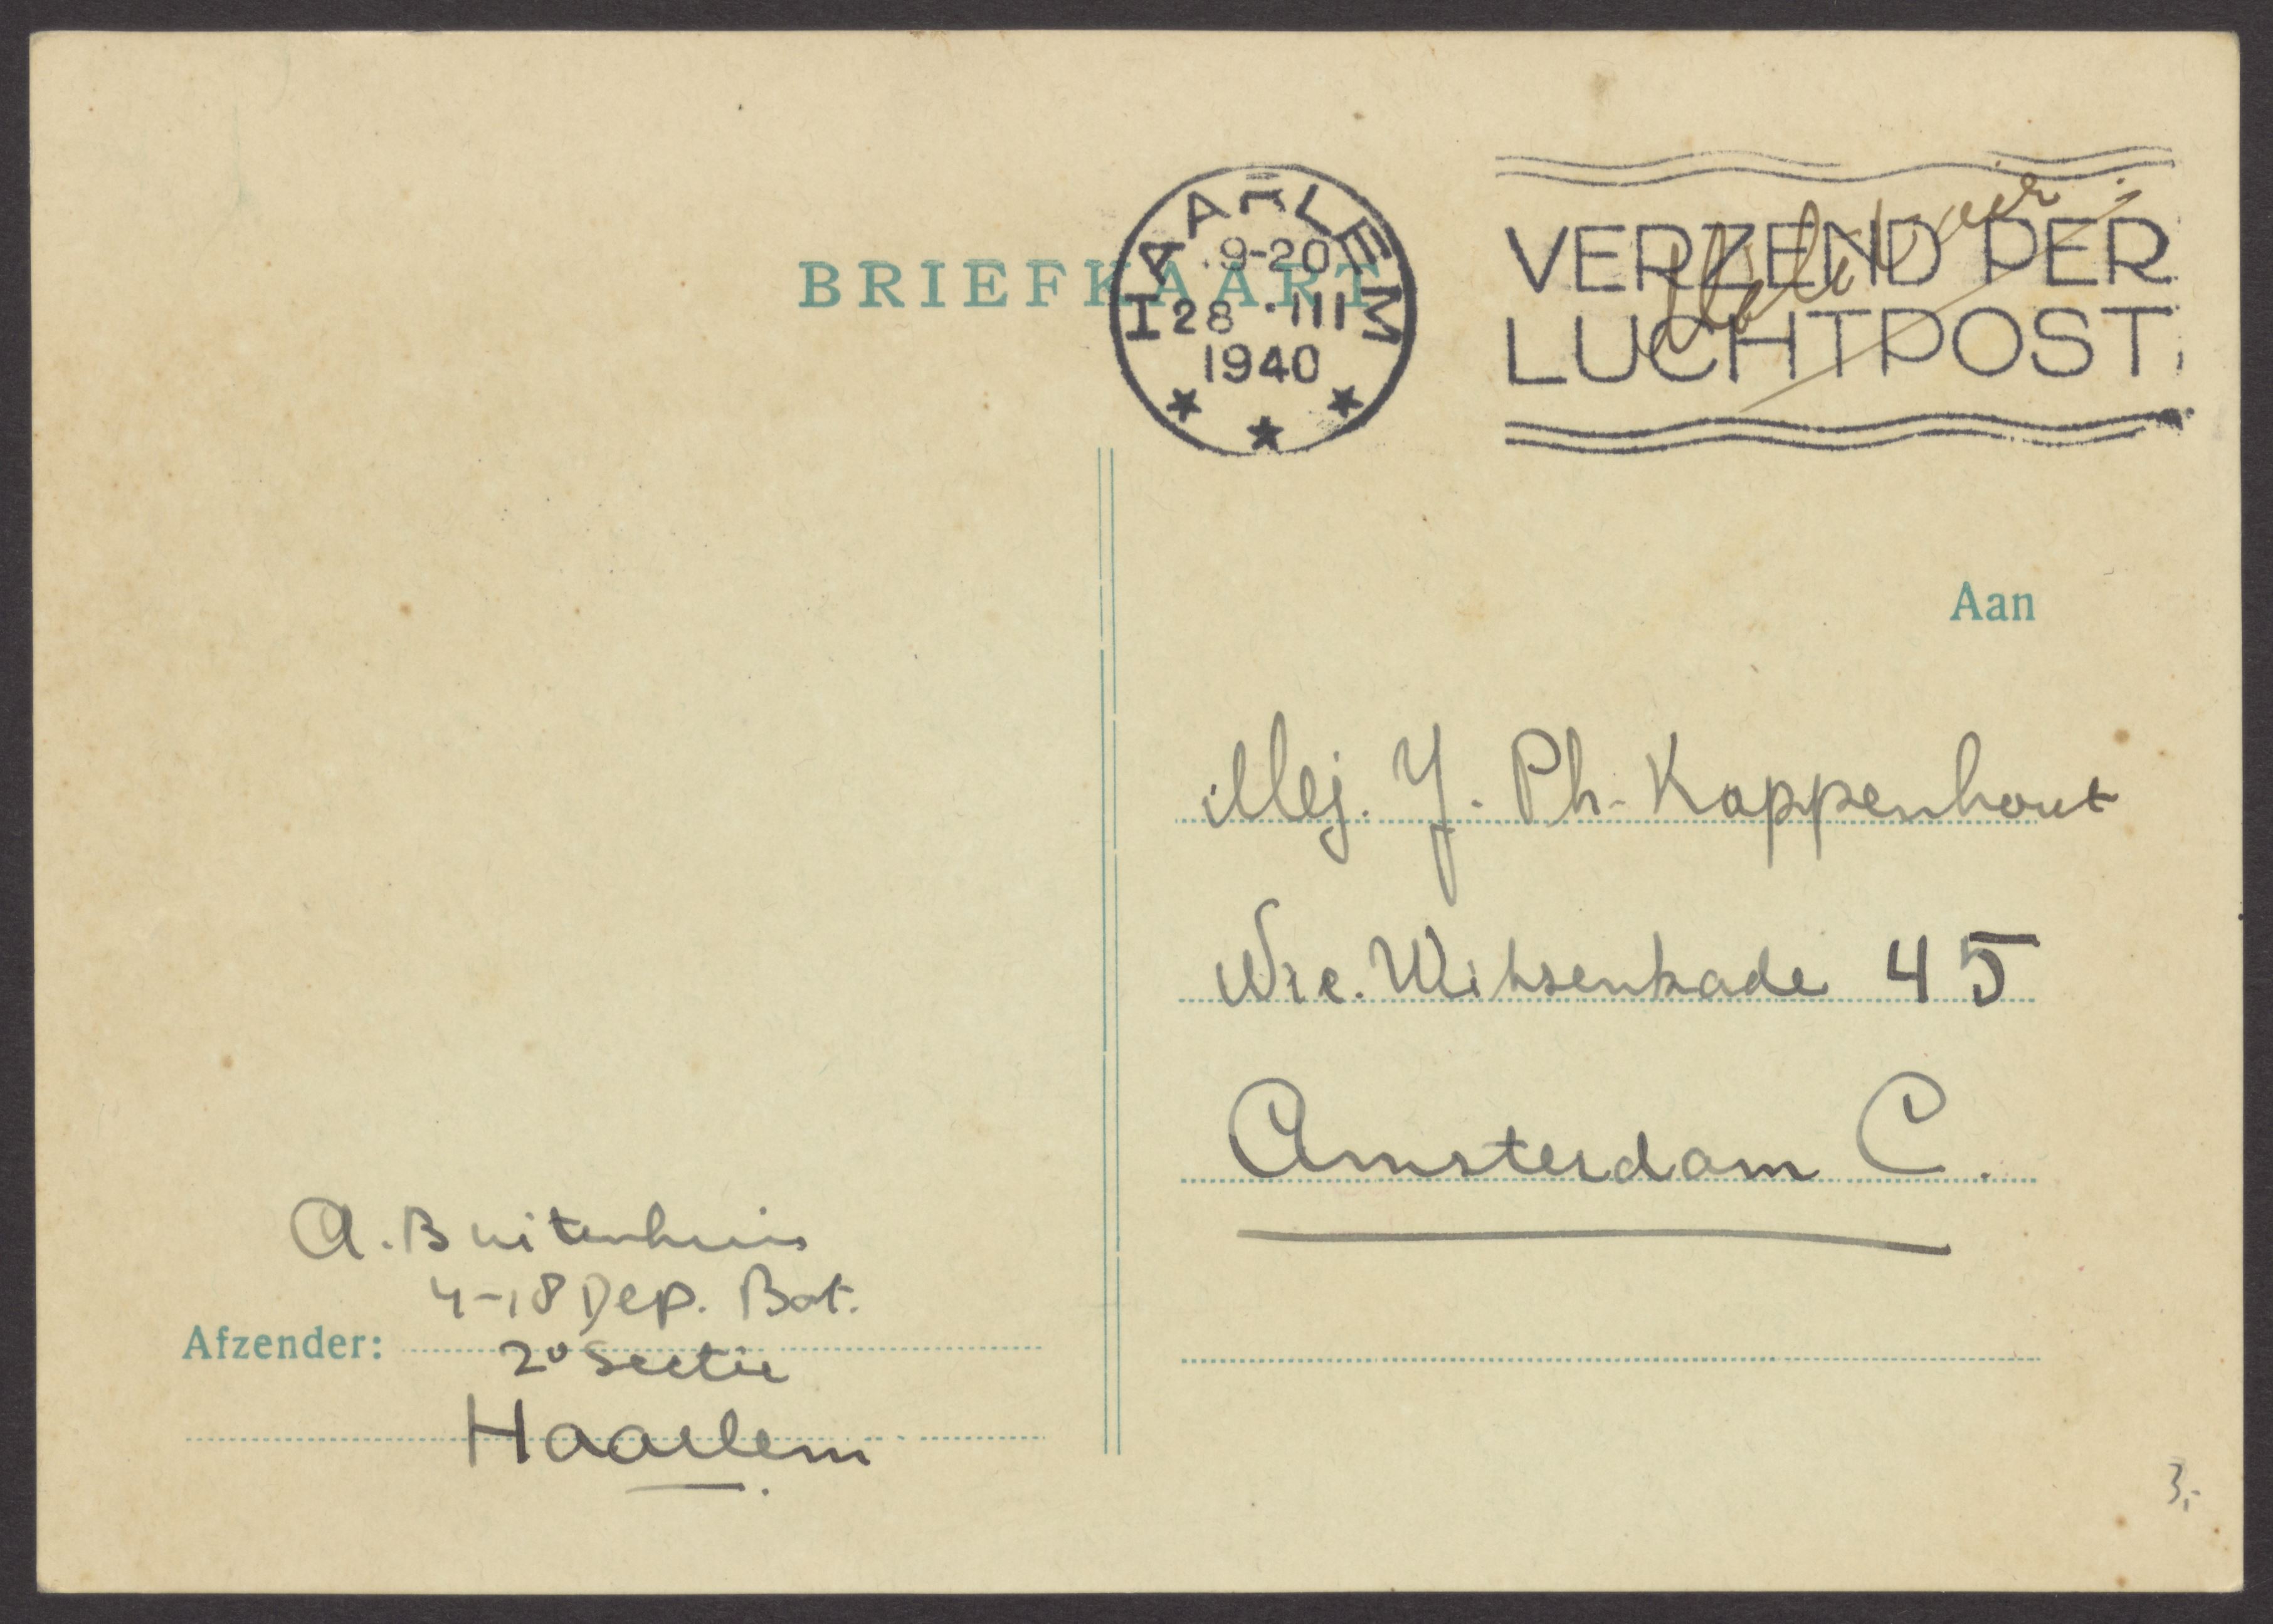 BRIEFKAART
HAARLEM
9-20
28 III
1940
VERZEND PER
LUCHTPOST
Aan
Mej. J. Ph. Kappenhout
Nre. Witsenkade 45
Amsterdam C.
A. Buitenhuis
4-18 Dep. Bat.
Afzender: 2e Sectie
Haarlem
3,-